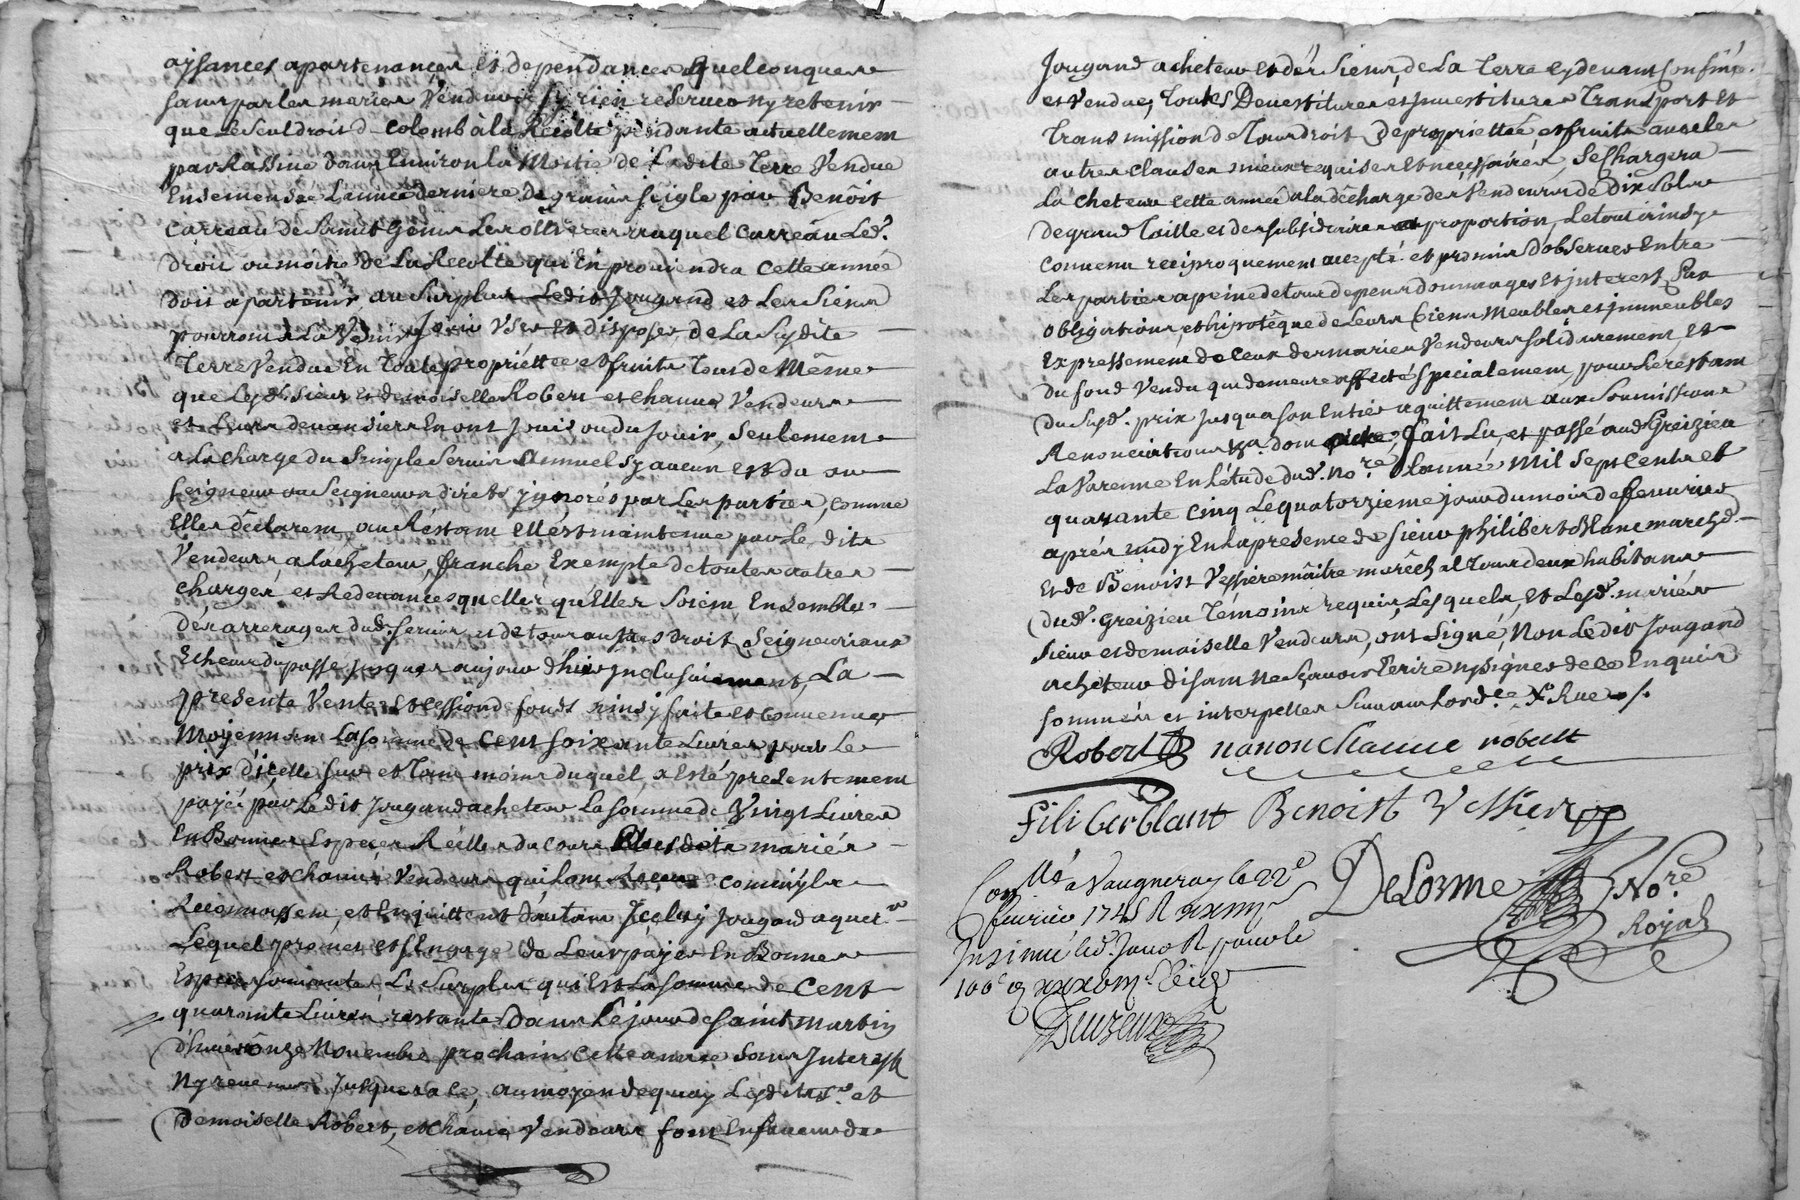 aysances apartenances et dependances quelconques
sans par les mariés Vendeurs sy rien reserver ny retenir
que le seul droit de colomb à la Récolte pendante actuellement
par Rassine dans Environ la Moitié de Ladite Terre Vendue
Ensemensée L'année derniere de grains seigle par Benoit
Carreau de Saint Genis Les ollieres auquel Carreau Led.
droit ou moitié de La Recolte qui En proviendra Cette année
doit apartenir au Surplus Ledit Jougand et Les Siens
pourront à La Venir Jouir User et disposer de La Susdite
Terre Vendue En Toute propriettée et fruits Tout de Même
que Lesd. Sieur et demoiselle Robert et Chanue Vendeurs
et Leurs devansiers En ont Jouis ou du Jouir, Seulement
a La charge du Simple Servis Annuel sy aucun est du au
Seigneur ou Seigneurs directs ygnorés par Les parties, comme
Elles déclarent, au Réstant Elle est maintenue par Les dits
Vendeurs a Lacheteur, franche, Exempte de toutes autres
charges et Redevances quelles qu'Elles Soient Ensembles
des arrerages dud. servis et de tous autres Droit Seigneuriaux
Echeus du passé jusques aujourd'huy Inclusivement, La
presente Vente et Cession de fonds ainsy faite et convenue
Moyennant La somme de Cent soixante Livres pour Le
prix d'icelle sur et Tant moins duquel, a Esté presentement
payée par Ledit Jougand acheteur La somme de Vingt Livres
En Bonnes Espèces Réelles du cours Ausdits mariés
Robert et Chanue Vendeurs qui Lont Receue comm'yls
Reconnoissent, et En quittent d'autant Jceluy Jougand
Lequel promet et s'Engage de Leur payer En Bonnes
Especes sonnantes, Le Surplus qui Est La somme de Cent
quarante Livres restantes Dans Le jour de Saint Martin
d'hiver onze Novembre prochain Cette année Sans Interest
Ny revenus Jusques a ce, au moyen de quoy Lesdits Sr. et
Demoiselle Robert, et Chanue Vendeurs font En faveur de
Jougand acheteur et des Siens, de La Terre cy devant confinée
et Vendue, Toutes Devestitures et Investitures Transport et
Transmission de Tous droit de propriettée et fruits avec les
autres Clauses mieux requises et necessaires Se Chargera
La cheteur cette année a la décharge des Vendeurs de dix Sols
de grand Taille et des subsidiaires a proportion, Le tout ainsy
convenu reciproquement accepté et promis d'observer Entre
Les parties a peine de tous depens dommages et interest Par
obligations, et hipotèque de Leurs Biens Meubles et immeubles
Expressement de Ceux des mariés Vendeurs solidairement, et
du fond Vendu qui demeure affecté spécialement pour Le restant
du susd. prix Jusqua son Entier aquittement aux Soumissions
Renonciations dont acte, fait Lu, et passé aud. Greizieu
La Varenne En L'étude dud. Nore. L'année Mil Sept Cents et
quarante Cinq Le quatorzieme jour du mois de fevrier
aprés midy En la presence de Sieur philibert Blanc march'd
et de Benoist Vessiere maître maréchal Tous deux habitans
dud. Greizieu Témoins requis, Lesquels, et Lesd. mariés
Sieur et demoiselle Vendeurs, ont Signé, Non Ledit Jougand
acheteur disant Ne Sçavoir Ecrire ny signer de ce Enquis
sommés et interpellés Suivant Lord.ce
Robert nanon Chanue robert
filiberblant Benoist Vessier
DeLorme Nore.
Royal
Con.llé a Vaugneray le 22e
fevrier 1745
Insinué led. Jour